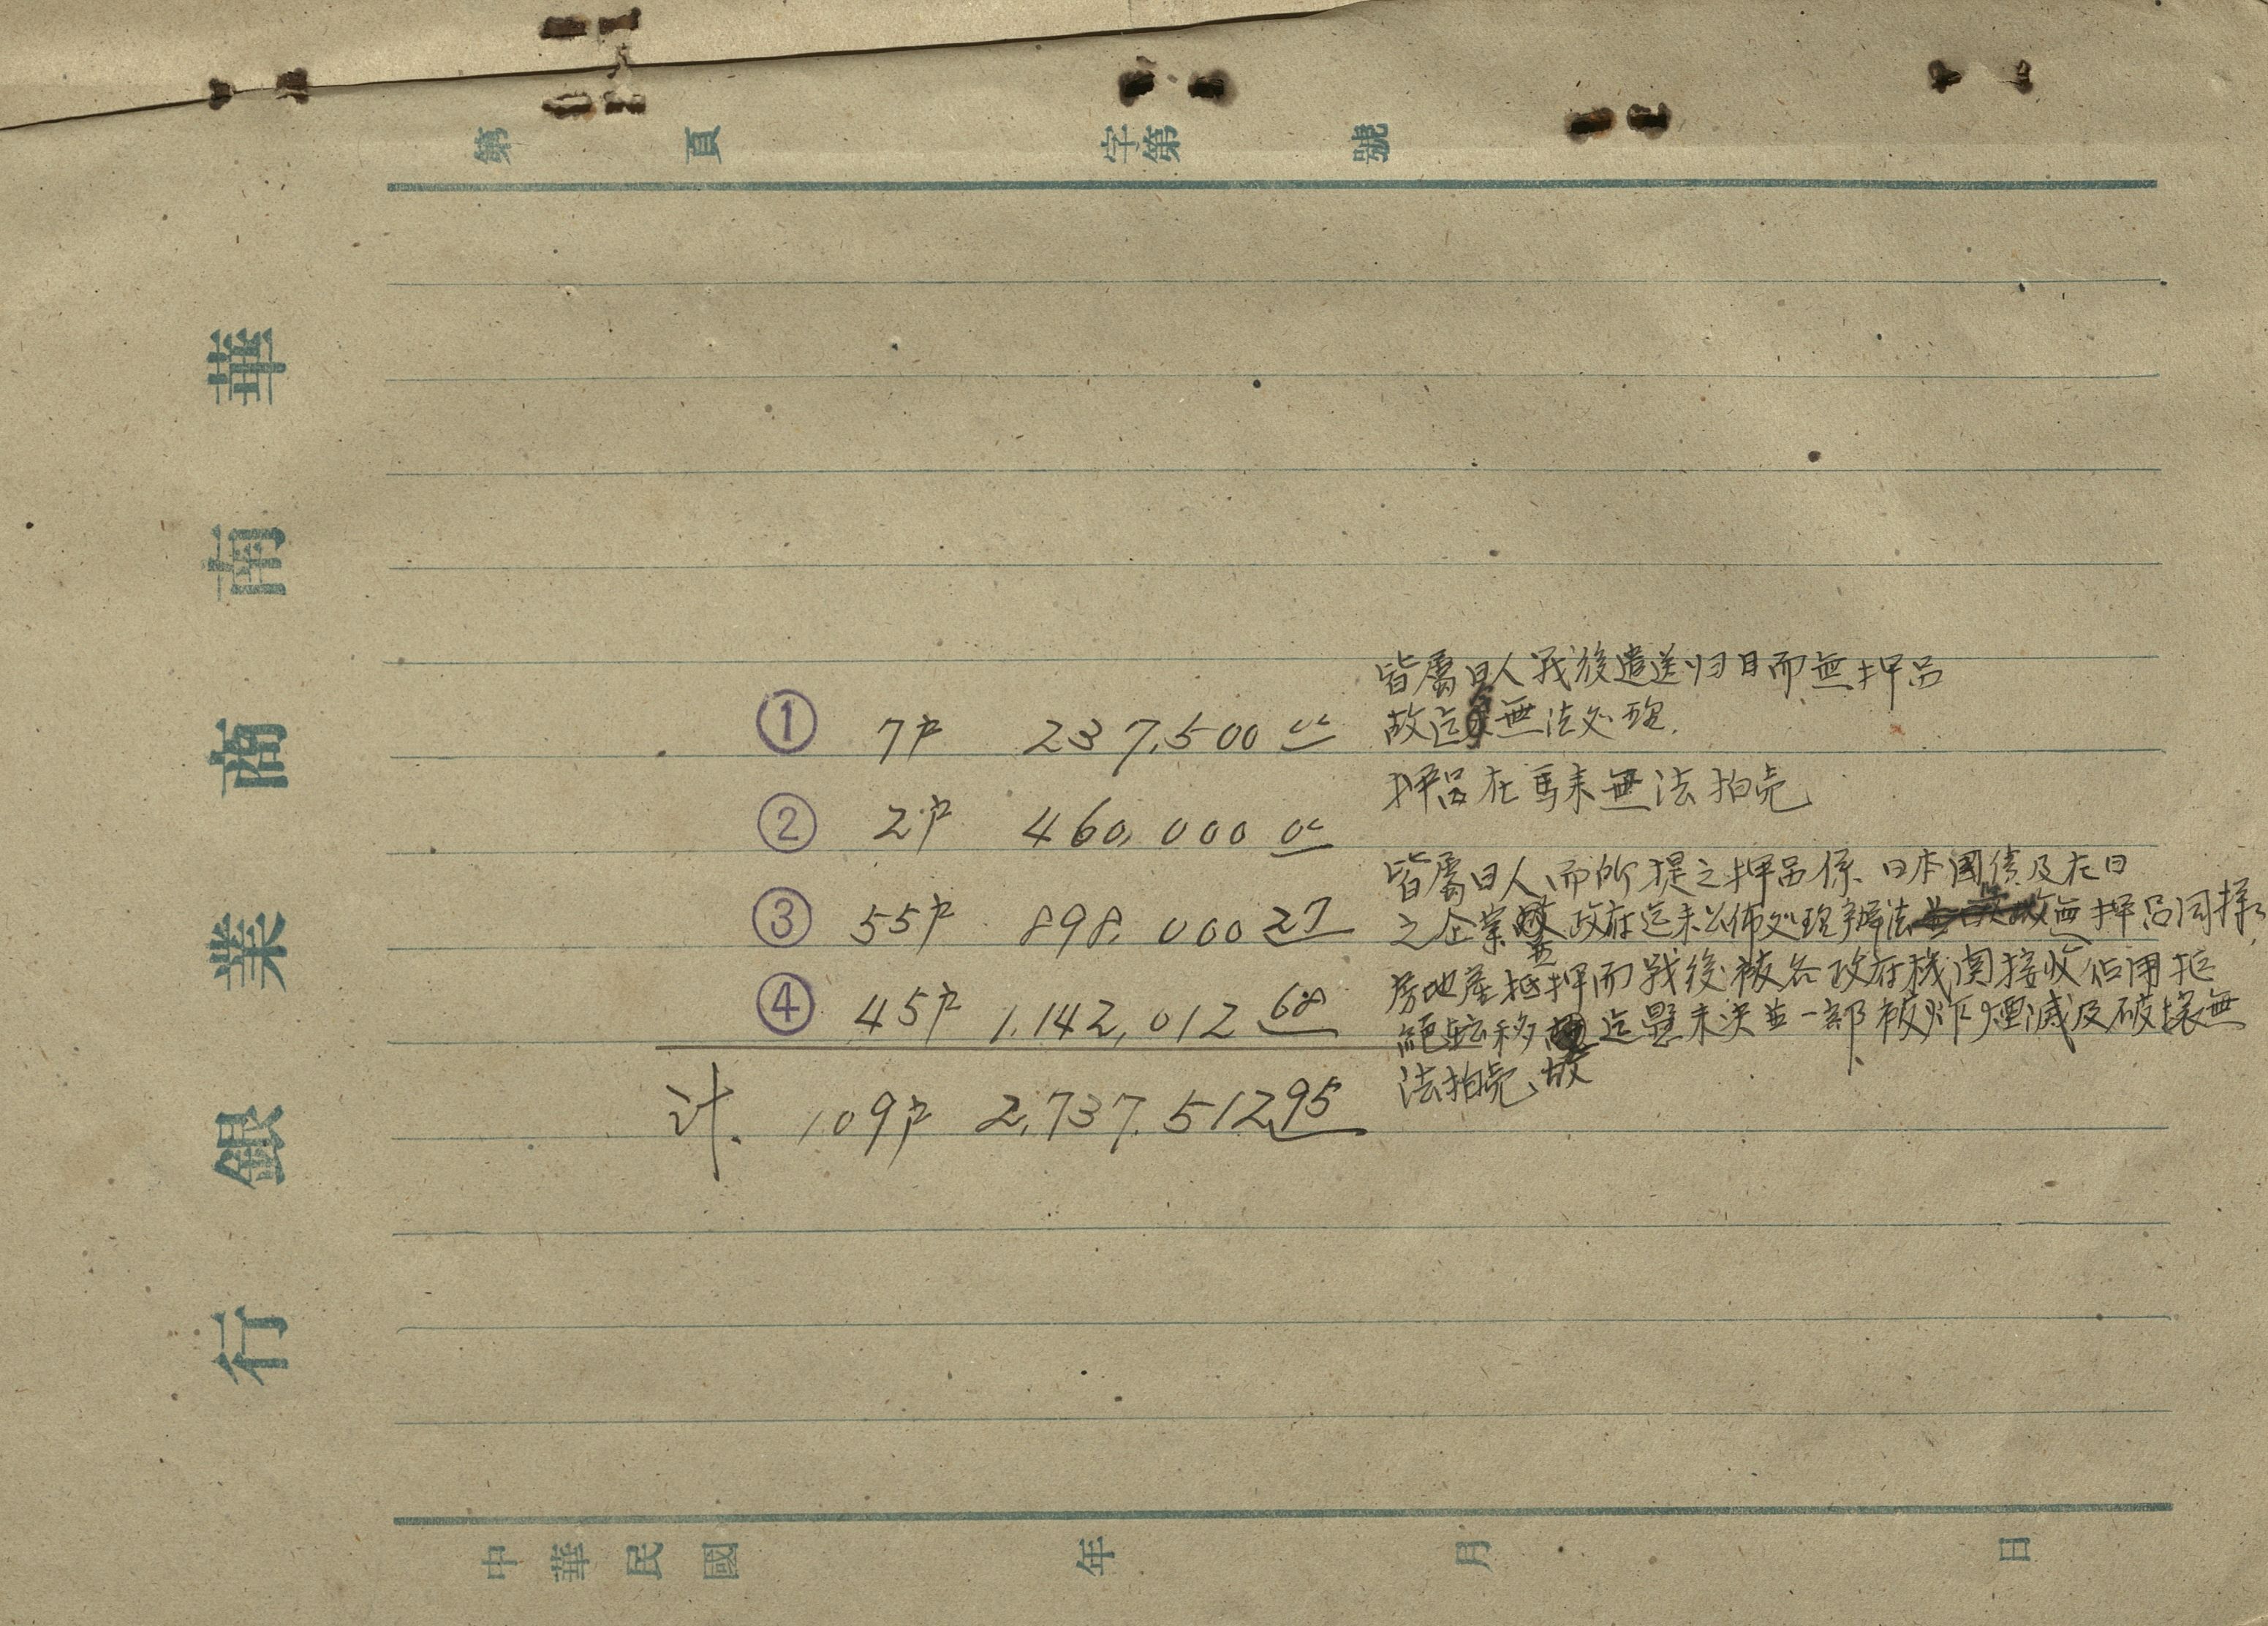 第 頁 字第 號
華南商業銀行
皆屬日人戦後遣送归日而無押品
① 7户 237,500 00 故迄無法处理.
押品在馬来無法拍売
② 2户 460,000 00
皆屬日人,而所提之押品係日本國債及在日
③ 55户 898,000 27 之企業並政府迄未公佈处理辦法無押品同様
房地産抵押而戦後被各政府機関接收佔用拒
④ 45户 1,142,012 68 絕転移迄懸未決並一部被炸煙滅及破壊無
法拍売、故
计. 109户 2,737,512 95
中華民國 年 月 日